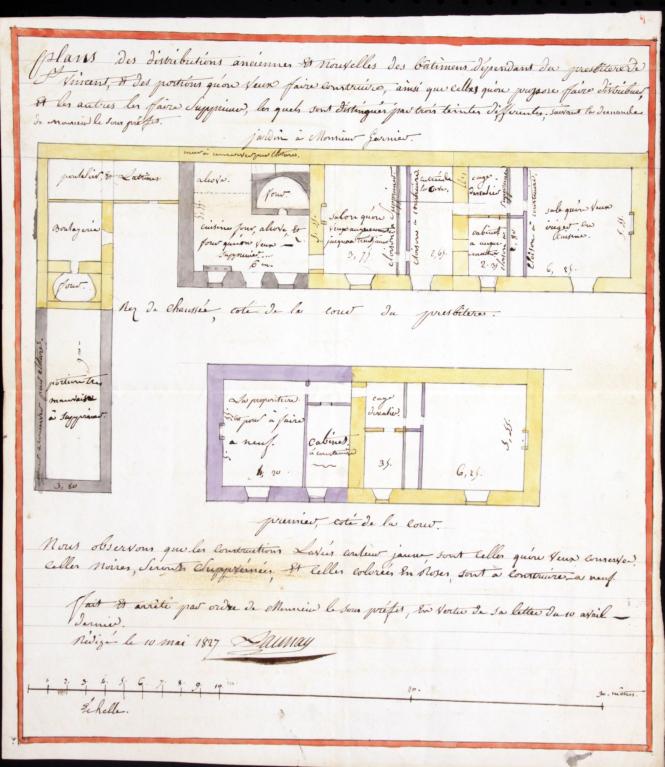 Plans des distributions anciennes & nouvelles des bâtimens dépendant du presbitere de
St Vincent, & des portions qu'on veux ffaire construire, ainsi que celles qu'on propose ffaire distribuer,
& les autres les ffaire supprimer, les quels sont distingués par trois teintes differentes. suivant la demande
de Monsieur le sous préfet.
jardin à Monsieur Garnier.
mur à conserver pour clôture.
poulalier, & Latrines
Boulagerie
four
portion très
mauvaise
à supprimer
3, 80
alcove.
four
cuisine four, alcove, &
four qu'on veux
supprimer
6 m.
salon qu'on
veux augmenter
3, 77
5, 55.
cloison à supprimer
cloison à construire
entrée de
la cave.
2, 65.
cage
d'escalier
cabinet
cloison à
supprimer
2, 80
cloison à construire.
sale qu'on veux
eriger en
cuisine.
6, 25.
5, 55.
Rez de chaussée, coté de la cour du presbitere.
La propriétaire
pour à faire
a neuf.
4, 20
cabinet
à construire
cage
d'escalier
35.
6, 25.
5, 55.
premier, coté de la cour.
Nous observons que les constructions Lavés couleur jaune sont celles qu'on veux conserver
celles Noires, seront supprimées, et celles colorées en Roses, sont à construire a neuf
ffait & arrêté par ordre de Monsieur le sous préfet, en vertu de sa lettre du 10 avril
dernier.
Rédigé le 10 mai 1827 Launay
1 2 3 4 5 6 7 8 9 10 m. 20. 30. mètres.
Echelle.